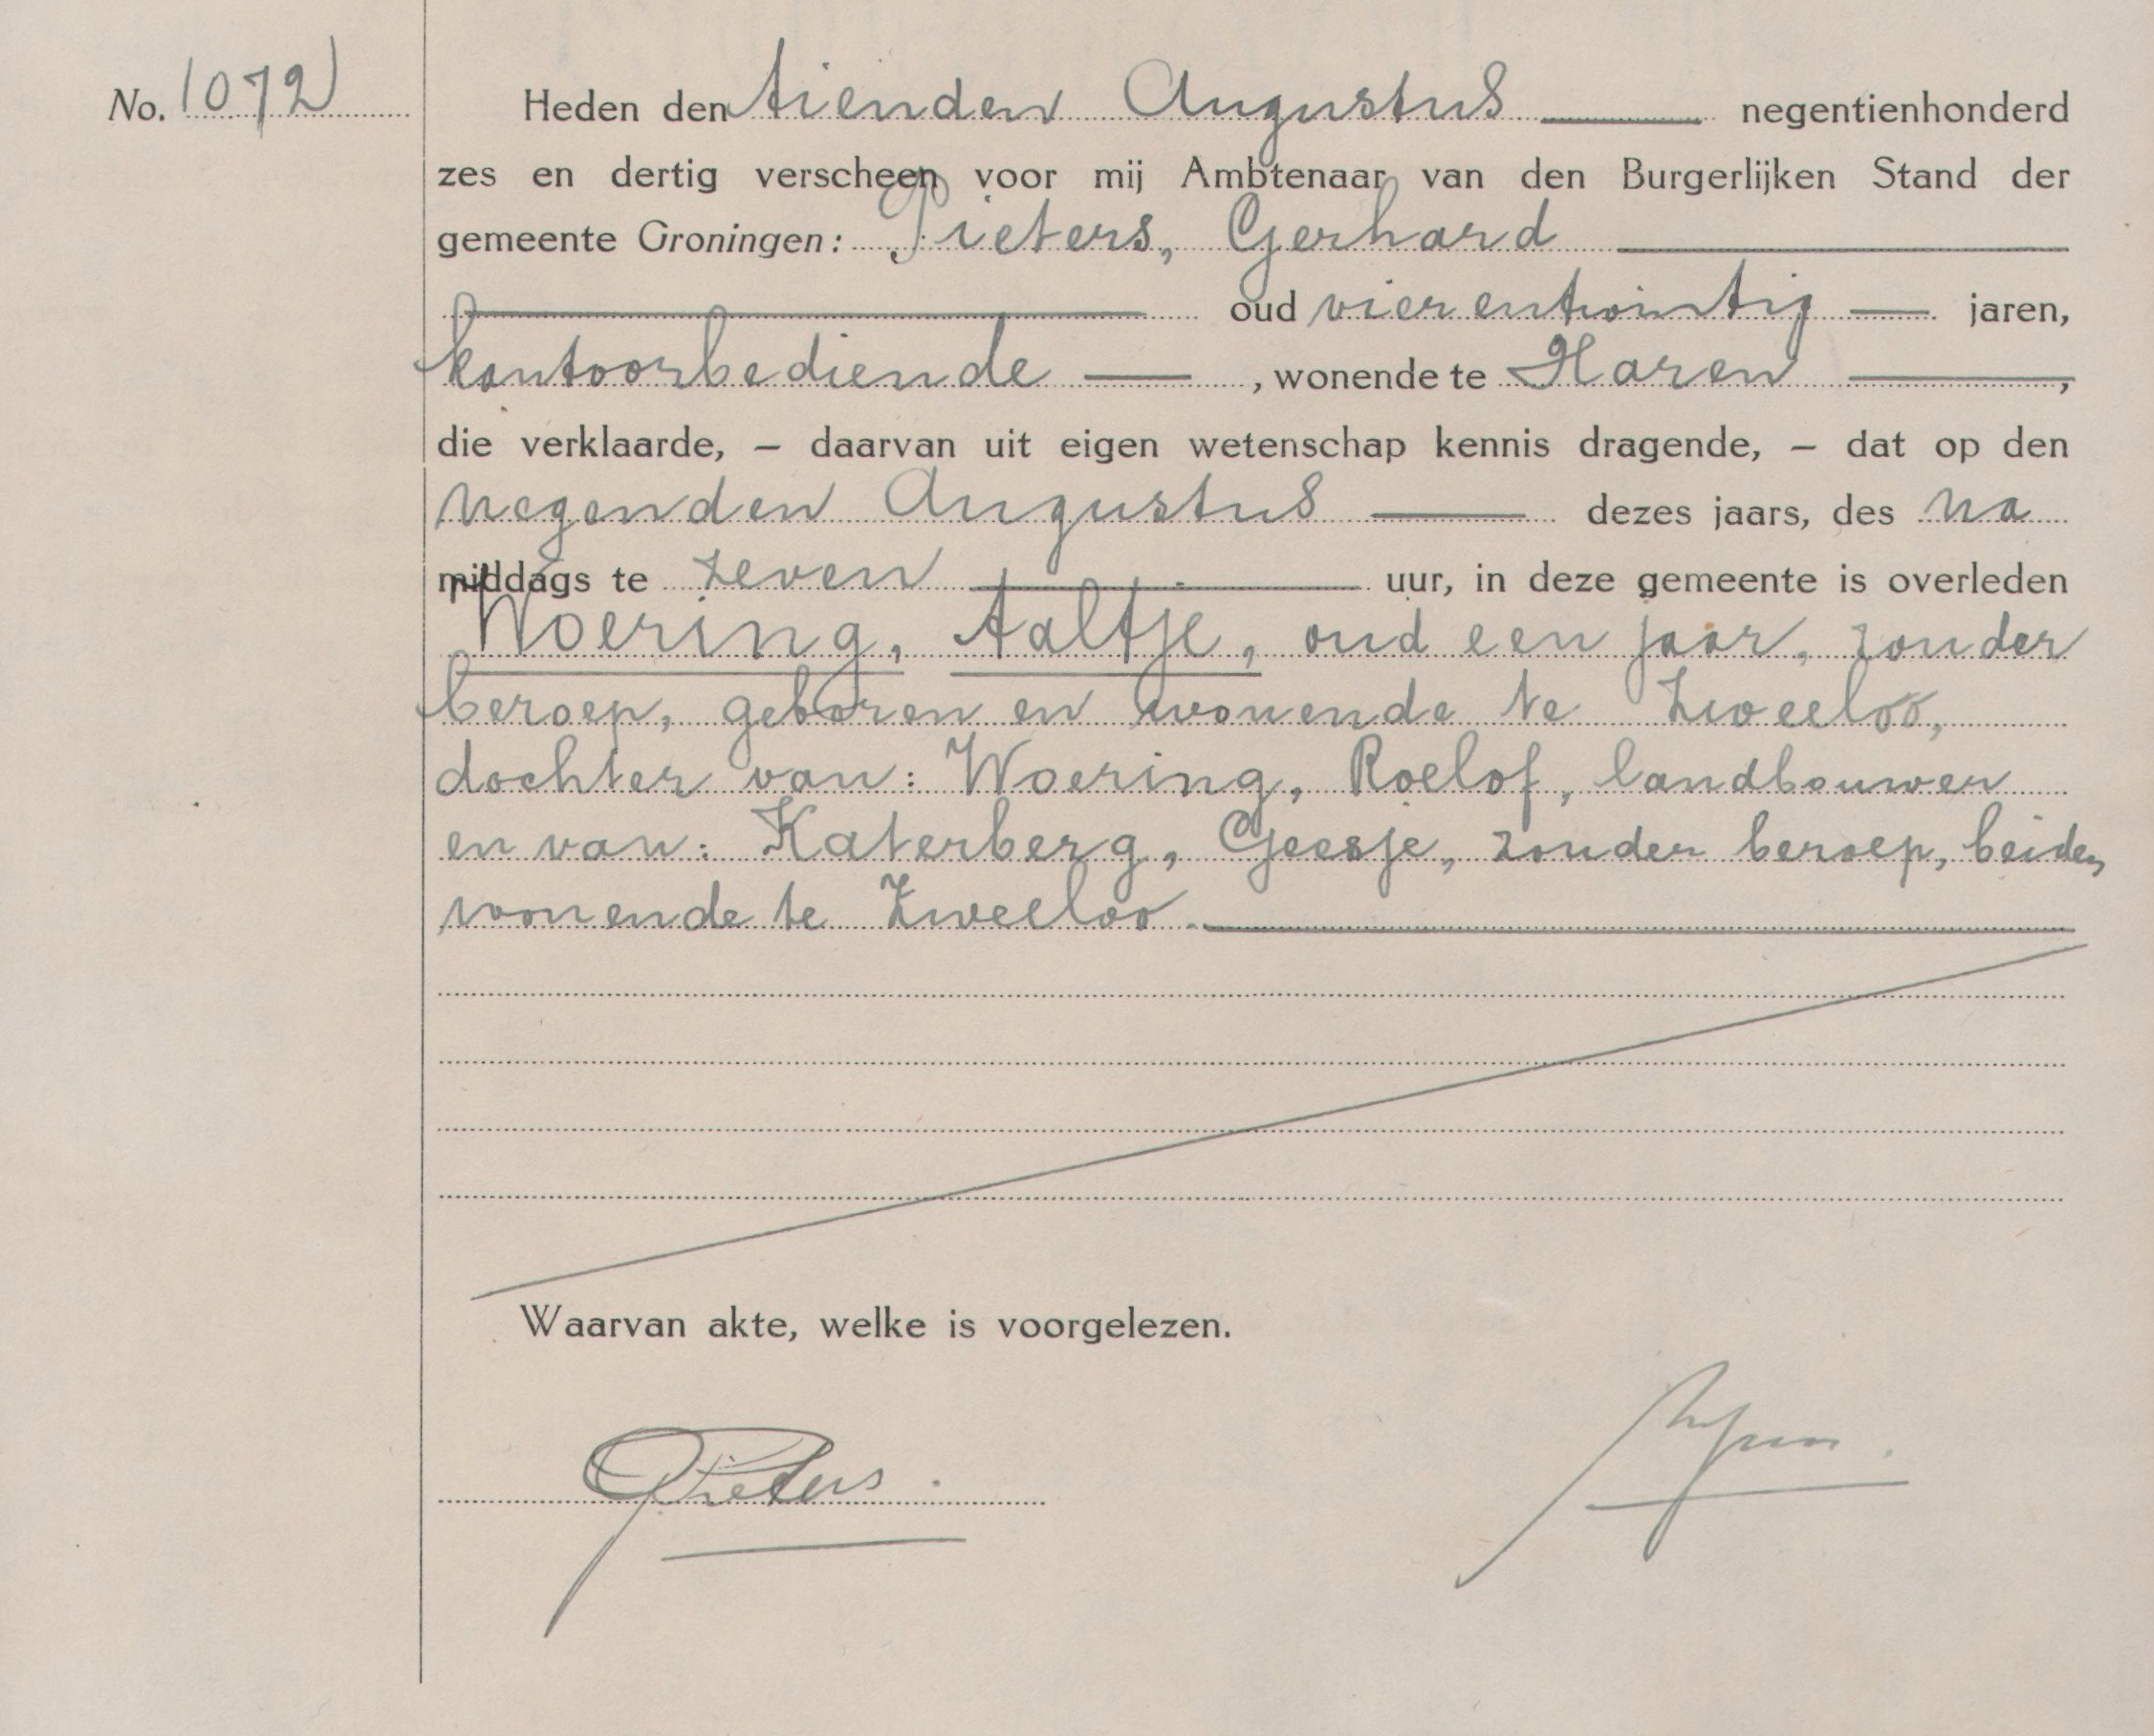 No. 1072
Heden den tienden Augustus negentienhonderd
zes en dertig verscheen voor mij Ambtenaar van den Burgerlijken Stand der
gemeente Groningen: Pieters, Gerhard
oud vierentwintig jaren,
kantoorbediende, wonende te Haren,
die verklaarde, – daarvan uit eigen wetenschap kennis dragende, – dat op den
negenden Augustus dezes jaars, des na
middags te zeven uur, in deze gemeente is overleden
Woering, Aaltje, oud een jaar, zonder
beroep, geboren en wonende te Zweeloo,
dochter van: Woering, Roelof, landbouwer
en van: Katerberg, Geesje, zonder beroep, beiden
wonende te Zweeloo.
Waarvan akte, welke is voorgelezen.
GPieters.